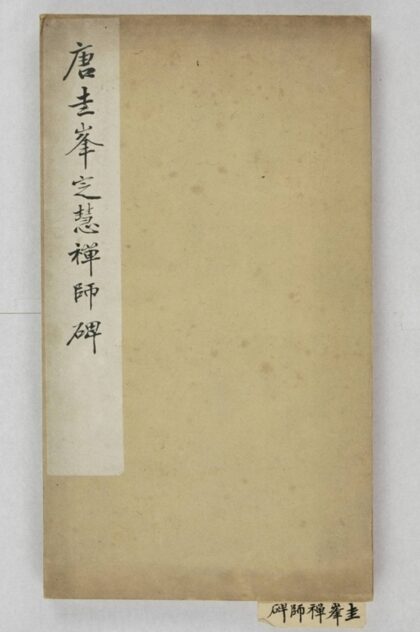 唐圭峯定慧禪師碑
圭峯禪師碑